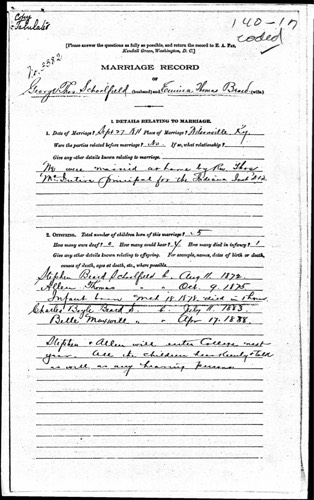 Copy
Tabulated
140-17
coded
[Please answer the questions as fully as possible, and return the record to E. A. Fay,
Kendall Green, Washington, D. C.]
No. 3582
MARRIAGE RECORD
OF
George Thos Schoolfield (husband) and Eumica Thomas Beard (wife)
1. DETAILS RELATING TO MARRIAGE.
1. Date of Marriage? Sept 27 Place of Marriage? Ky
Were the parties related before marriage? No. If so, what relationship?
Give any other details known relating to marriage.
We were married at home by Rev. Thos
McIntire principal for the Indiana Inst
2. OFFSPRING. Total number of children born of this marriage? 5
How many were deaf? 0 How many could hear? 4 How many died in infancy? 1
Give any other details known relating to offspring. For example, names, dates of birth or death,
causes of death, ages at death, etc., etc., where possible.
Stephen Beard Schoolfield b. Aug 11. 1872
Allen Thomas " " Oct. 9. 1875
Infant born 18 1878 died in
Charles Boyle Beard S. b. July 11. 1883
Belle Maxwell " " Apr 17. 1888.
Stephen & Allen will enter College next
year. All the children hear &
as well as any hearing persons